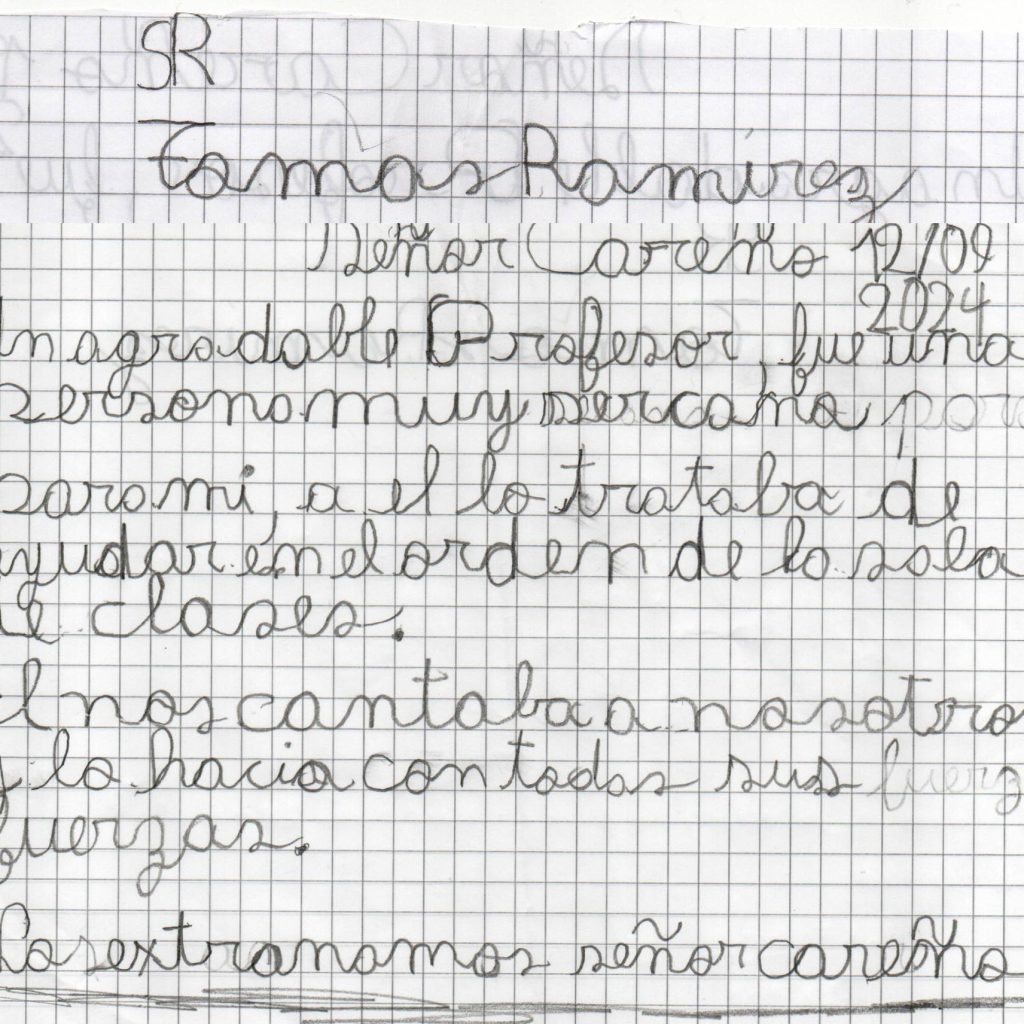 SR
Tomás Ramirez
Señor Careño 12/09
2024
Un agradable Profesor, fue una
persona muy sercana para
para mi, a el lo trataba de
ayudar en el orden de la sala
de clases.
el nos cantaba a nosotros
y lo hacia con todas sus fuerz
fuerzas.
Los extranamos señor careño